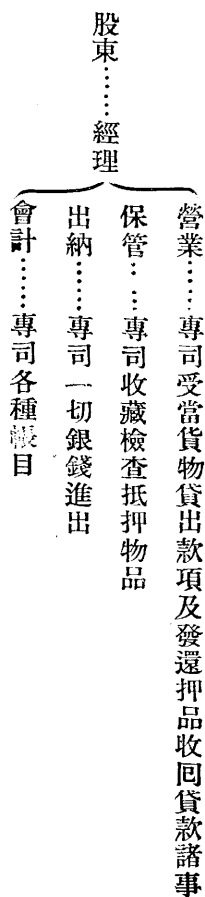 股東……經理
營業……專司受當貨物貸出款項及發還押品收囘貸款諸事
保管……專司收藏檢查抵押物品
出納……專司一切銀錢進出
會計……專司各種帳目